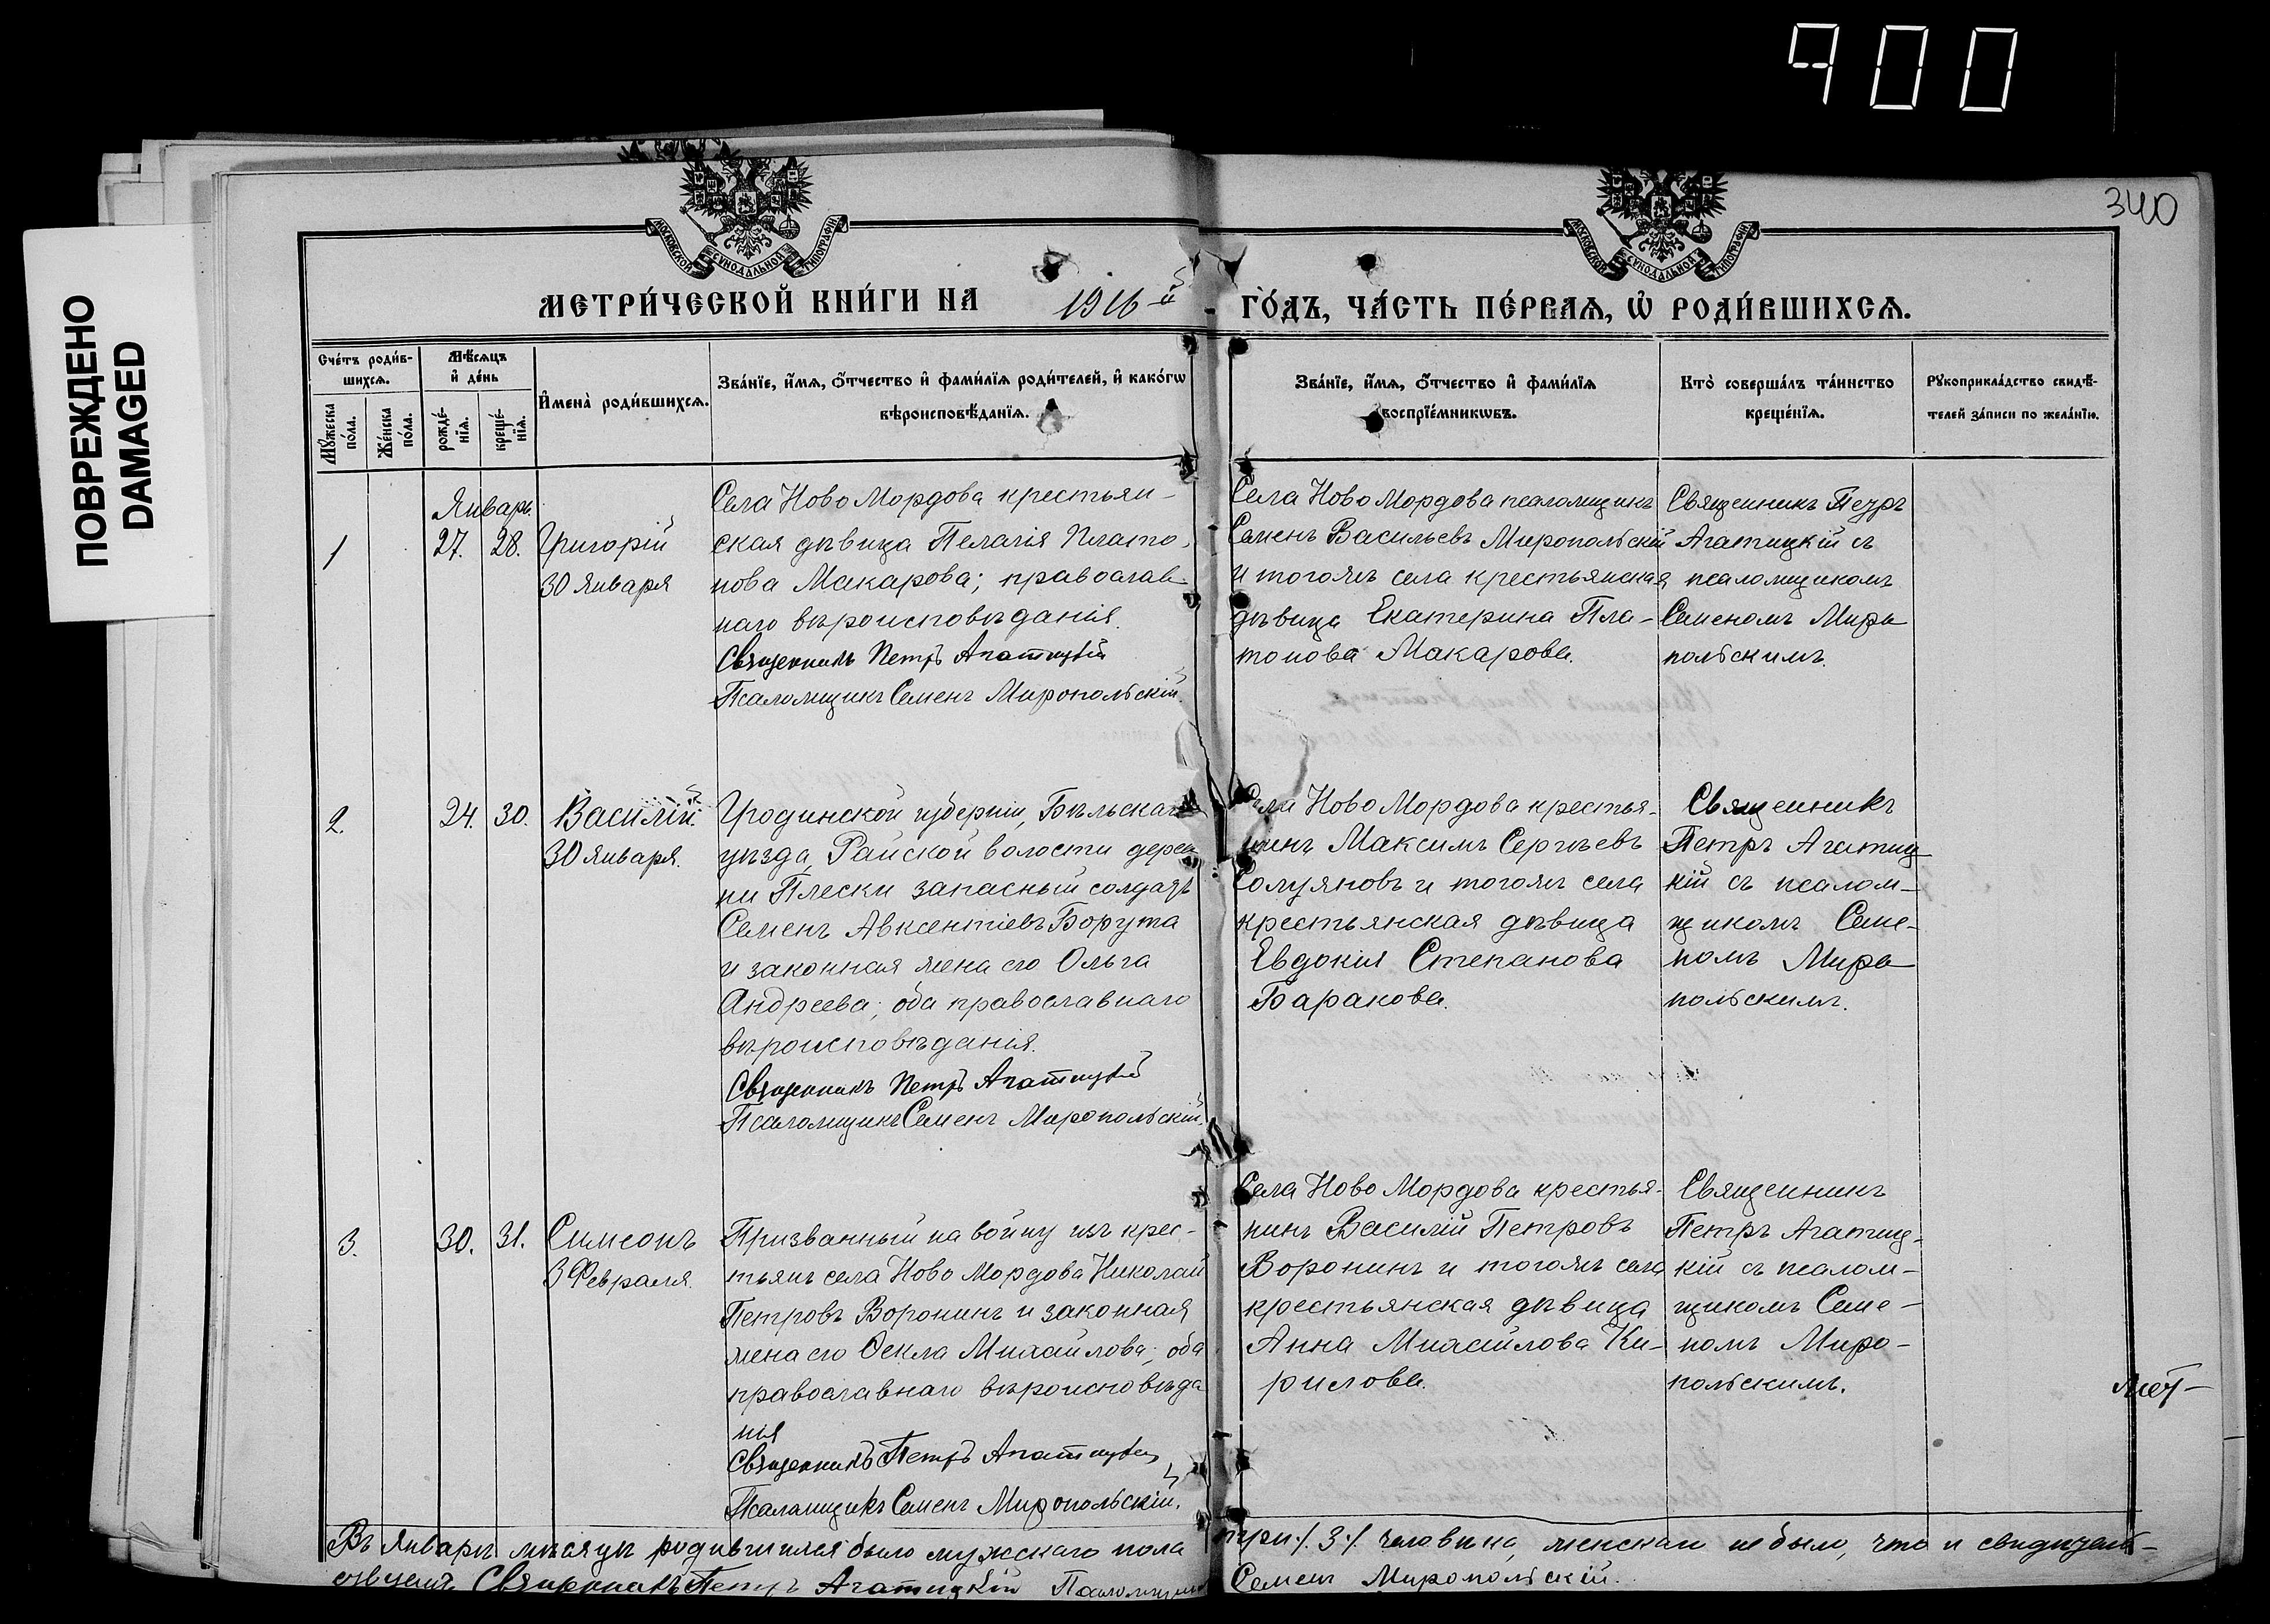 900
340
ПОВРЕЖДЕНО
DAMAGED
МОСКОВСКОЙ СѴНОДАЛЬНОЙ ТИПОГРАФІИ
МОСКОВСКОЙ СѴНОДАЛЬНОЙ ТИПОГРАФІИ
МЕТРИ́ЧЕСКОЙ КНИ́ГИ НА 1916-й ГО́ДЪ, ЧА́СТЬ ПЕ́РВАѦ, Ѡ҆ РОДИ́ВШИХСѦ.
Сче́тъ роди́в-
шихсѧ.
Мꙋ́жеска по́ла.
Же́нска по́ла.
Мѣ́сѧцъ
и҆ де́нь
рожде́-
нїѧ.
креще́-
нїѧ.
И҆мена̀ роди́вшихсѧ.
Зва́нїе, и҆́мѧ, ѻ҆́тчество и҆ фами́лїѧ роди́телей, и҆ како́гѡ
вѣроисповѣ́данїѧ.
Зва́нїе, и҆́мѧ, ѻ҆́тчество и҆ фами́лїѧ
воспрїе́мникѡвъ.
Кто̀ соверша́лъ та́инство
креще́нїѧ.
Рꙋкоприкла́дство свидѣ́-
телей за́писи по жела́нїю.
Январь
1
27. 28.
Григорій
30 января
Села Ново Мордова крестьян-
ская дѣвица Пелагія Плато-
нова Макарова; православ-
наго вѣроисповѣданія.
Священникъ Петръ Агатицкій
Псаломщикъ Семенъ Миропольскій.
Села Ново Мордова псаломщикъ
Семенъ Васильевъ Миропольскій
и тогожъ села крестьянская
дѣвица Екатерина Пла-
тонова Макарова.
Священникъ Петръ
Агатицкій съ
псаломщикомъ
Семеномъ Миро
польскимъ.
2.
24. 30.
Василій.
30 января.
Гродинской губерніи, Бѣльскаго
уѣзда, Райской волости дерев
ни Плески запасный солдатъ
Семенъ Авксентіевъ Борута
и законная жена его Ольга
Андреева; оба православнаго
вѣроисповѣданія.
Священникъ Петръ Агатицкій
Псаломщикъ Семенъ Миропольскій.
Села Ново Мордова крестья-
нинъ Максимъ Сергѣевъ
Солуяновъ и тогожъ села
крестьянская дѣвица
Евдокія Степанова
Баракова.
Священникъ
Петръ Агатиц
кій съ псалом-
щикомъ Семе-
номъ Миро
польскимъ.
3.
30. 31.
Симеонъ
3 Февраля.
Призванный на войну изъ крес-
тьянъ села Ново Мордова Николай
Петровъ Воронинъ и законная
жена его Ѳекла Михайлова; оба
православнаго вѣроисповѣда
нія
Священникъ Петръ Агатицкій
Псаломщикъ Семенъ Миропольскій.
Села Ново Мордова крестья-
нинъ Василій Петровъ
Воронинъ и тогожъ села
крестьянская дѣвица
Анна Михайлова Ки-
рилова.
Священникъ
Петръ Агатиц-
кій съ псалом-
щикомъ Семе-
номъ Миро-
польскимъ.
Въ январѣ мѣсяцѣ родившихся было мужскаго пола три ./.3./. человѣка, женскаго не было, что и свидѣтель-
ствуемъ Священникъ Петръ Агатицкій Псаломщикъ Семенъ Миропольскій.